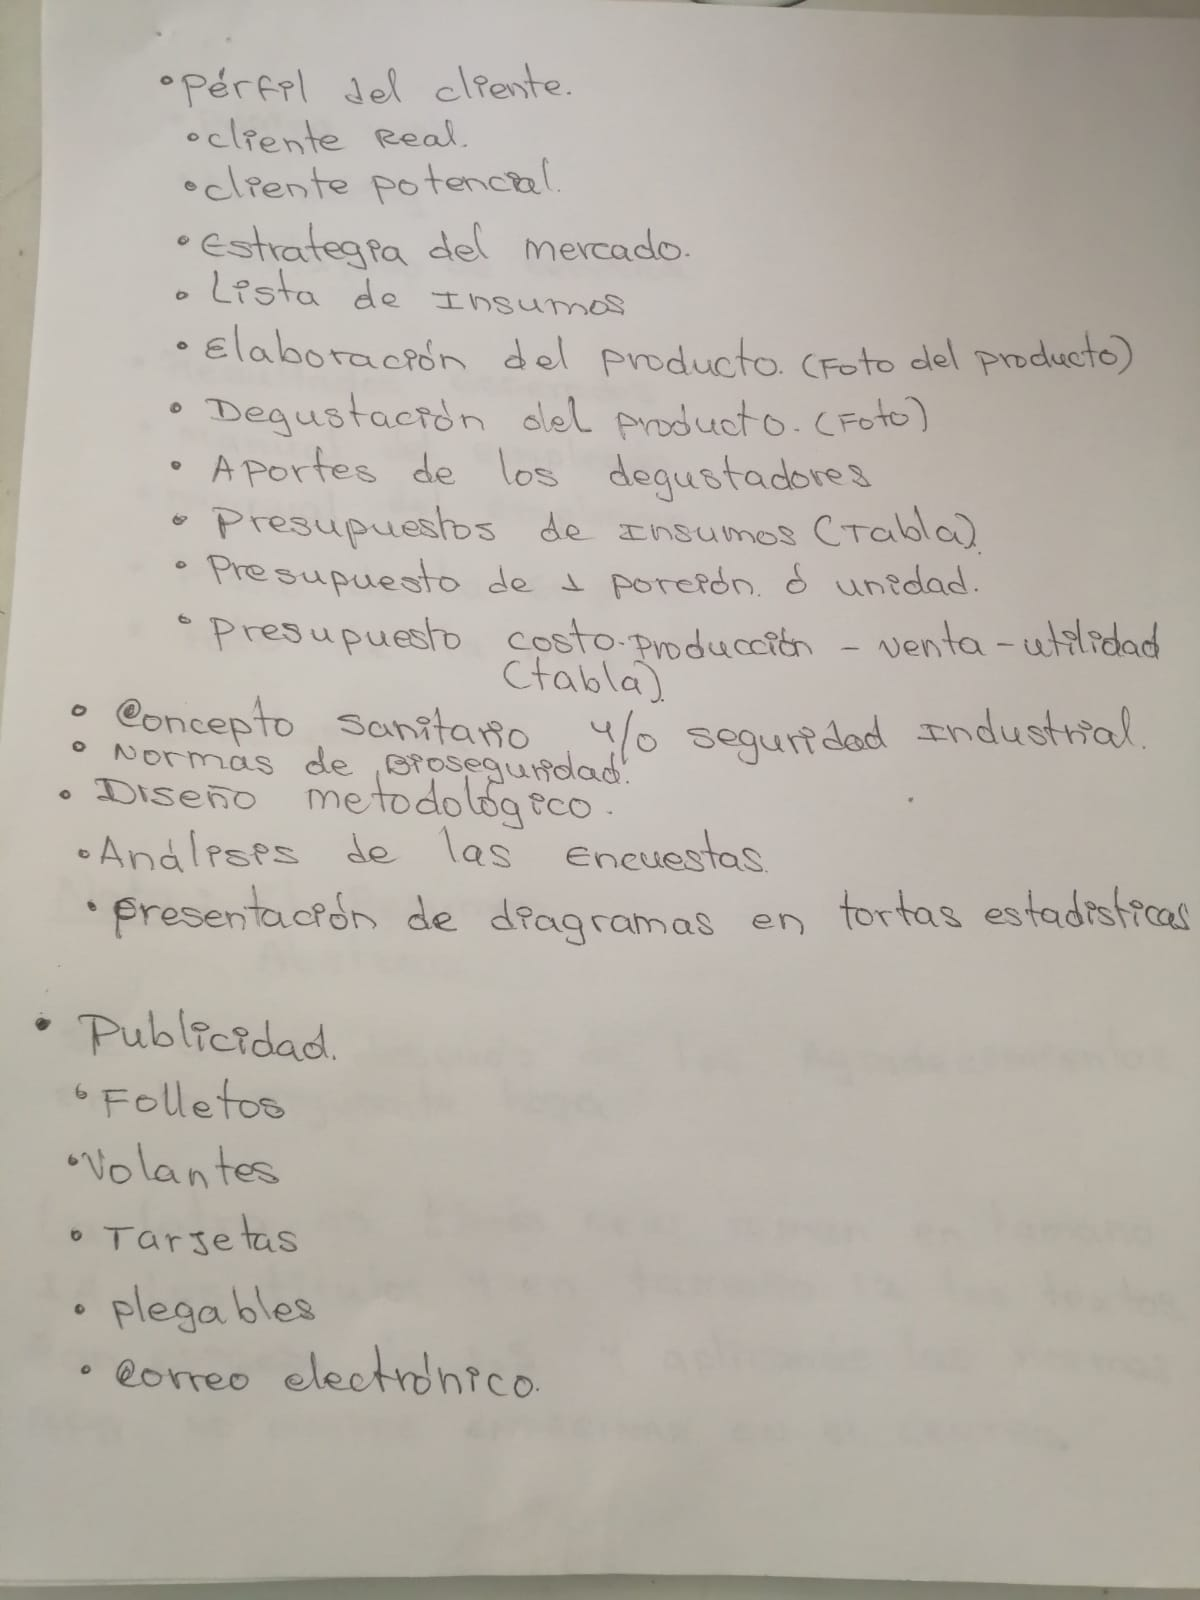 • Pérfil del cliente.
• cliente Real.
• cliente potencial.
• Estrategia del mercado.
• Lista de Insumos
• Elaboración del producto. (Foto del producto)
• Degustación del producto. (Foto)
• Aportes de los degustadores
• Presupuestos de Insumos (Tabla).
• Presupuesto de 1 porción. ó unidad.
• Presupuesto costo-producción - venta - utilidad
(tabla).
• Concepto sanitario y/o seguridad Industrial.
• Normas de Bioseguridad.
• Diseño metodológico.
• Análisis de las Encuestas.
• Presentación de diagramas en tortas estadísticas
• Publicidad.
• Folletos
• Volantes
• Tarjetas
• plegables
• Correo electrónico.